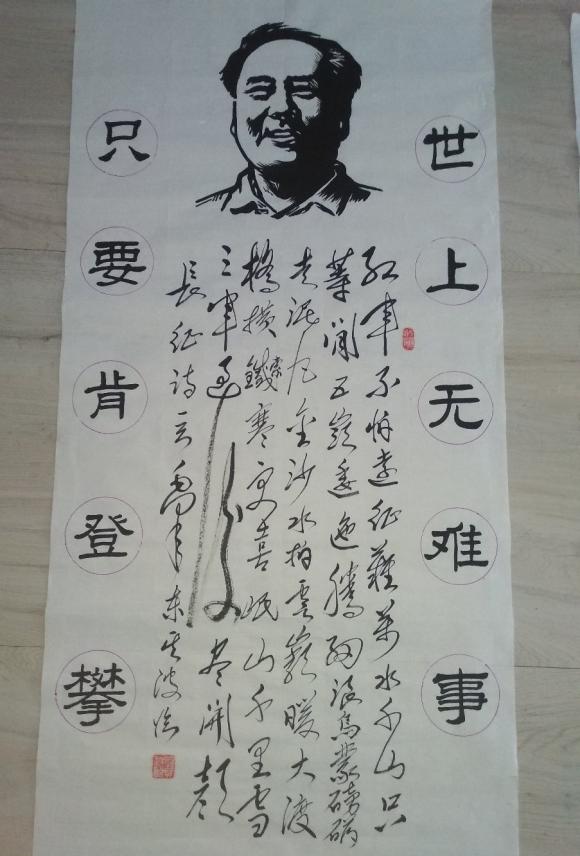 世上无难事
只要肯登攀
红军不怕远征难万水千山只
等闲五岭逶迤腾细浪乌蒙磅礴
走泥丸金沙水拍云崖暖大渡
桥横铁索寒更喜岷山千里雪
三军过后尽开颜
長征诗一首